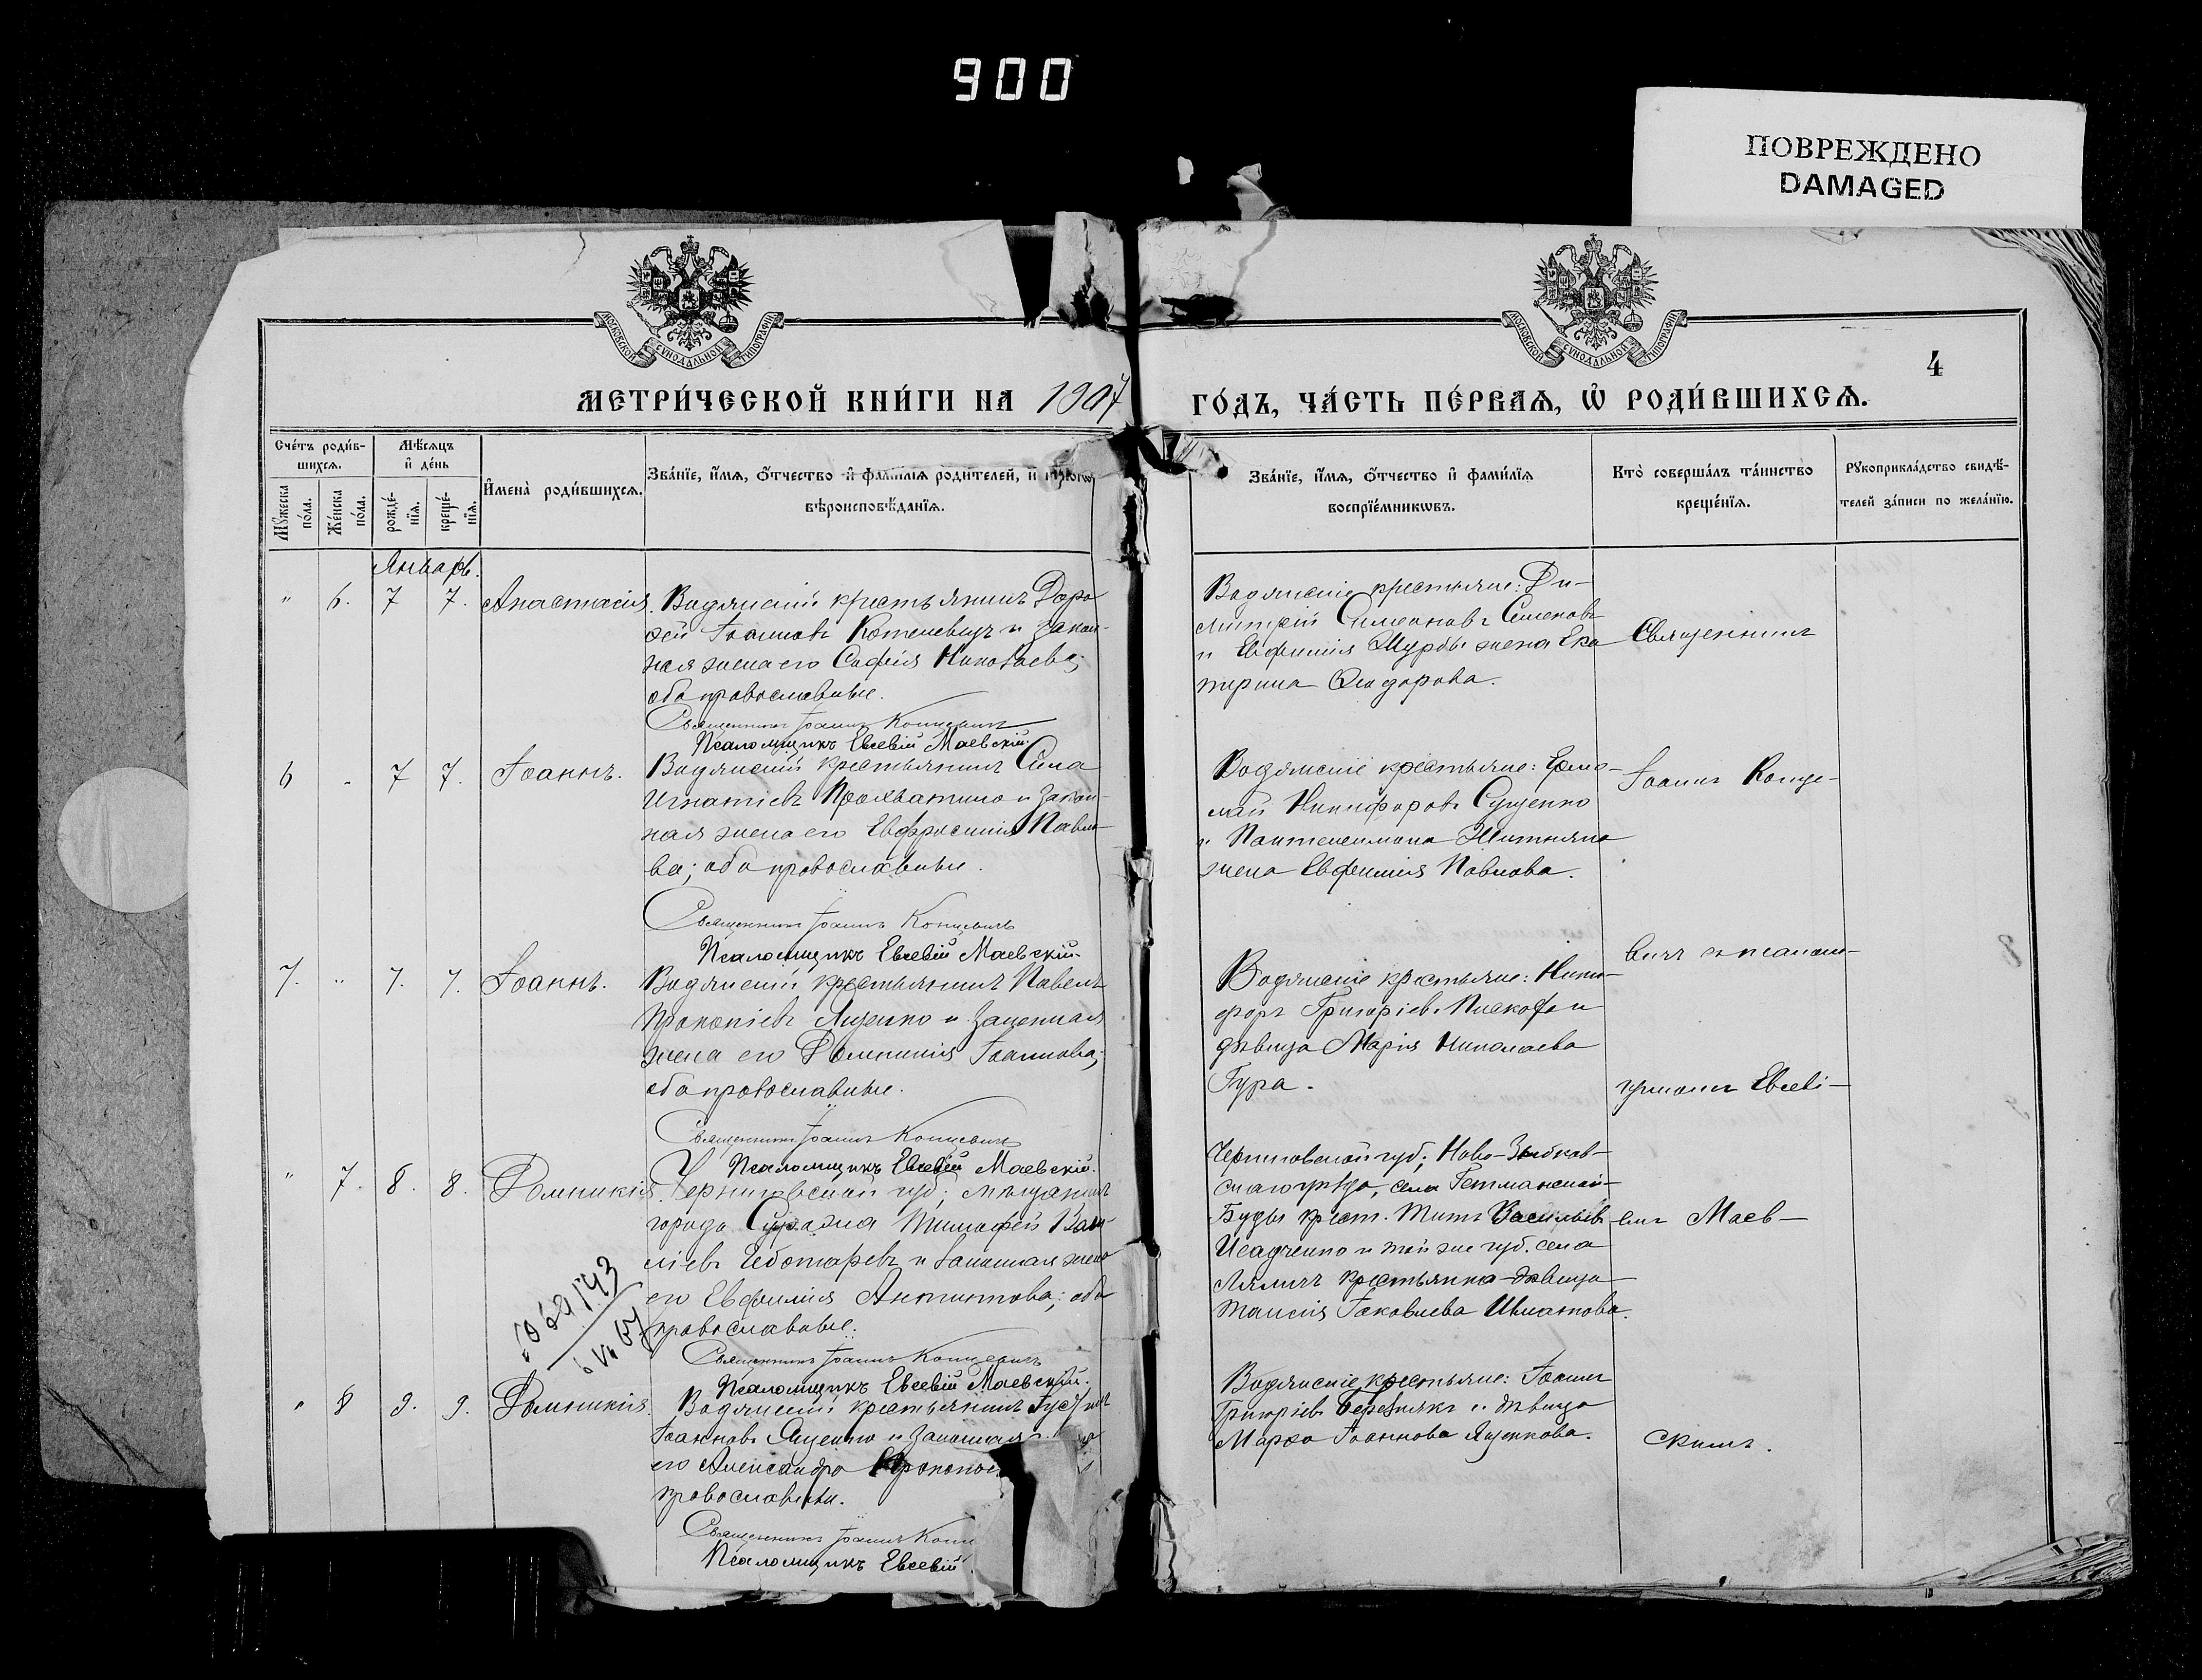 900
ПОВРЕЖДЕНО
DAMAGED
МОСКОВСКОЙ СѴНОДАЛЬНОЙ ТИПОГРАФІИ
МОСКОВСКОЙ СѴНОДАЛЬНОЙ ТИПОГРАФІИ
4
МЕТРИ́ЧЕСКОЙ КНИ́ГИ НА 1907
ГО́ДЪ, ЧА́СТЬ ПЕ́РВАѦ, Ѡ҆ РОДИ́ВШИХСѦ.
Сче́тъ роди́в-
шихсѧ.
Мꙋ́жеска по́ла.
Же́нска по́ла.
Мѣ́сѧцъ
и҆ де́нь
рожде́-
нїѧ.
креще́-
нїѧ.
И҆мена̀ роди́вшихсѧ.
Зва́нїе, и҆́мѧ, ѻ҆́тчество и҆ фами́лїѧ роди́телей, и҆
вѣроисповѣ́данїѧ.
Зва́нїе, и҆́мѧ, ѻ҆́тчество и҆ фами́лїѧ
воспрїе́мникѡвъ.
Кто̀ соверша́лъ та́инство
креще́нїѧ.
Рꙋкоприкла́дство свидѣ́-
телей за́писи по жела́нїю.
Январь.
" 6. 7 7. Анастасія.
Водянскій крестьянинъ Доро
ѳей Іоанновъ Котеневичъ и закон-
ная жена его Софія Николаева;
оба православные.
Священникъ Іоаннъ Концевичъ
Псаломщикъ Евсевій Маевскій.
Водянскіе крестьяне: Ди-
митрій Симеоновъ Семеновъ
и Евфимія Шурбы жена Ека
терина Ѳеодорова.
Священникъ
6 " 7 7. Іоаннъ.
Водянскій крестьянинъ Сила
Игнатіевъ Прохватило и закон-
ная жена его Евфросинія Павло-
ва; оба православные.
Священникъ Іоаннъ Концевичъ
Псаломщикъ Евсевій Маевскій.
Водянскіе крестьяне: Ермо-
лай Никифоровъ Сущенко
и Пантелеимона Житника
жена Евфимія Павлова.
Іоаннъ Конце-
7. " 7. 7. Іоаннъ.
Водянскій крестьянинъ Павелъ
Прокопіевъ Ященко и законная
жена его Домникія Іоаннова;
оба православные.
Священникъ Іоаннъ Концевичъ
Псаломщикъ Евсевій Маевскій.
Водянскіе крестьяне: Ники-
форъ Григоріевъ Пискофа и
дѣвица Марія Николаева
Гура.
вичъ съ псалом-
щикомъ Евсеві-
" 7. 8. 8. Домникія.
Черниговской губ; мѣщанинъ
города Суража Тимофей Васи-
ліевъ Чеботаревъ и законная жена
его Евфимія Антипова; оба
православные.
Священникъ Іоаннъ Концевичъ
Псаломщикъ Евсевій Маевскій.
Черниговской губ; Ново-Зыбков-
скаго уѣзда, села Гетманской-
Буды крест. Титъ Васильевъ
Исадченко и той же губ. села
Ляличъ крестьянка-дѣвица
Таисія Іаковлева Игнатова.
емъ Маев-
" 8 9. 9. Домникія.
Водянскій крестьянинъ Іустинъ
Іоанновъ Ященко и законная
его Александра Прокопо
православные.
Священникъ Іоаннъ Конц
Псаломщикъ Евсевій
Водянскіе крестьяне: Іоаннъ
Григоріевъ Березнякъ и дѣвица
Марфа Іоаннова Ященкова.
скимъ.